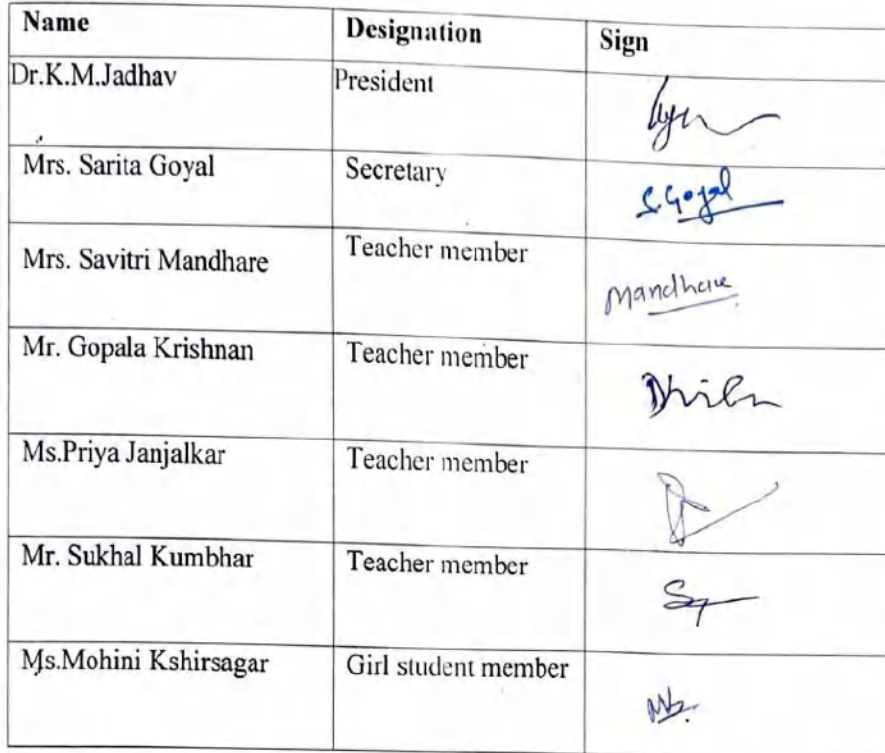 Name Designation Sign
Dr.K.M.Jadhav President
Mrs. Sarita Goyal Secretary S.Goyal
Mrs. Savitri Mandhare Teacher member Mandhare
Mr. Gopala Krishnan Teacher member
Ms.Priya Janjalkar Teacher member
Mr. Sukhal Kumbhar Teacher member
Ms.Mohini Kshirsagar Girl student member